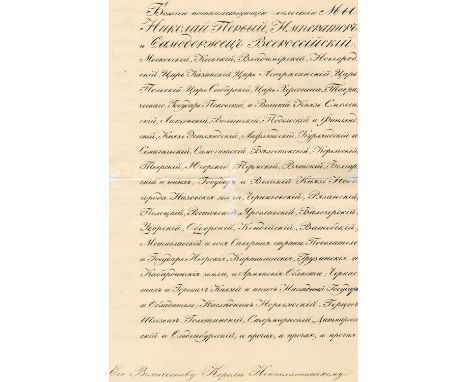 Божиею поспешествующею милостию Мы
Николай Первый, Императоръ
и Самодержецъ Всероссійскій.
Московскій, Кіевскій, Владимірскій, Новгород
скій Царь Казанскій Царь Астраханскій, Царь
Польскій, Царь Сибирскій, Царь Херсониса, Таври
ческаго, Государь Псковскій, и Великій Князь Смолен
скій, Литовскій, Волынскій, Подольскій и Финлянд
скій, Князь Эстляндскій, Лифляндскій, Курляндскій и
Семигальскій, Самогитскій, Бѣлостокскій, Корельскій,
Тверскій, Югорскій, Пермскій, Вятскій, Болгар
скій и иныхъ, Государь и Великій Князь Нова
города Низовскія земли, Черниговскій, Рязанскій,
Полоцкій, Ростовскій, Ярославскій, Бѣлозерскій,
Удорскій, Обдорскій, Кондійскій, Витебскій,
Мстиславскій и всея Сѣверныя страны Повелитель
и Государь Иверскія, Карталинскія, Грузинскія и
Кабардинскія земли, и Арменскія Области, Черкас
скихъ и Горскихъ Князей и иныхъ Наслѣдный Государь
и Обладатель, Наслѣдникъ Норвежскій, Герцогъ
Шлезвигъ Голстинскій, Стормарнскій, Дитмарсен
скій и Олденбургскій, и прочая, и прочая, и прочая
Его Величеству Королю Неаполитанскому.